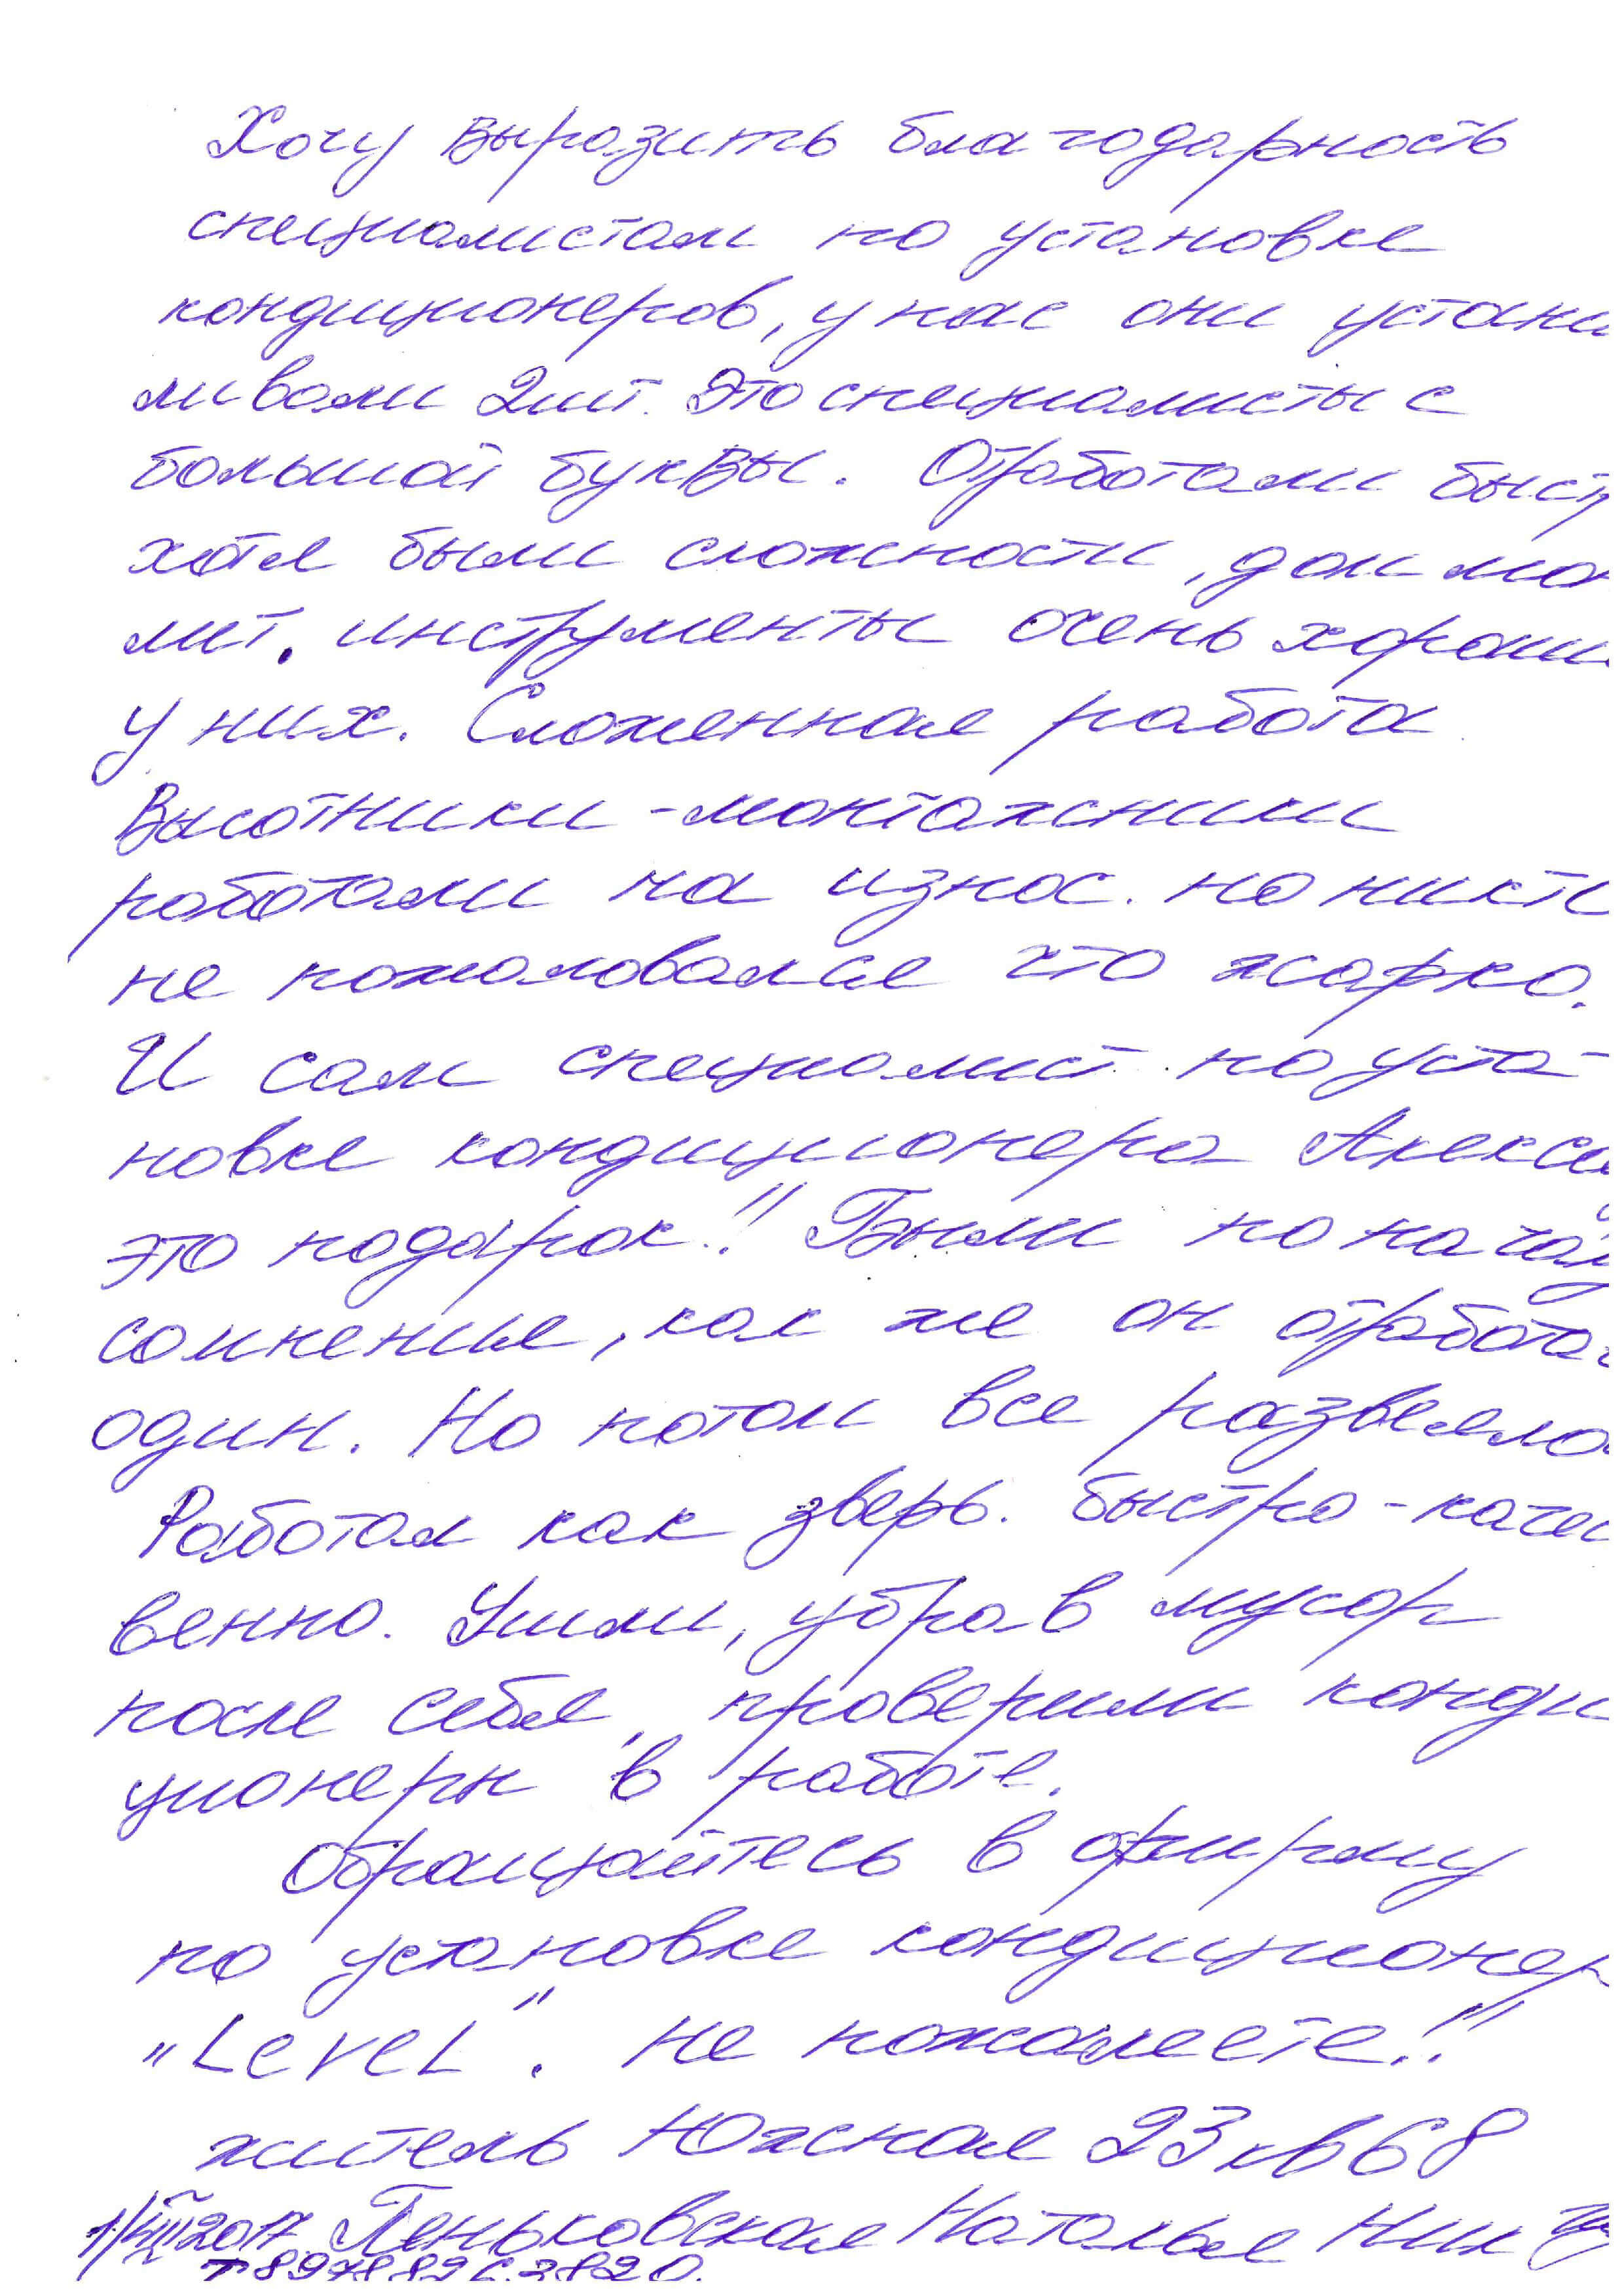 Хочу выразить благодарность
специалистам по установке
кондиционеров, у нас они устани
ливали 2шт. Это специалисты с
большой буквы. Отработали быстр
хотя были сложности, дом мон
лит. инструменты очень хороши
у них. Сложенная работа
Высотники - монтажники
работали на износ. но никто
не пожаловался что жарко.
И сам специалист по уста-
новке кондиционера Алекса
это подарок!! Были по начал
сомнения, как же он отработа
один. Но потом все развеяло
Работал как зверь. быстро - качес
венно. Ушли, убрав мусор
после себя, проверили конди
ционеры в работе.
Обращайтесь в фирму
по установке кондиционер
„Level". Не пожалеете!!
житель Южная 23 кв 68
1/VIII 2017 Пеньковская Наталья Ник